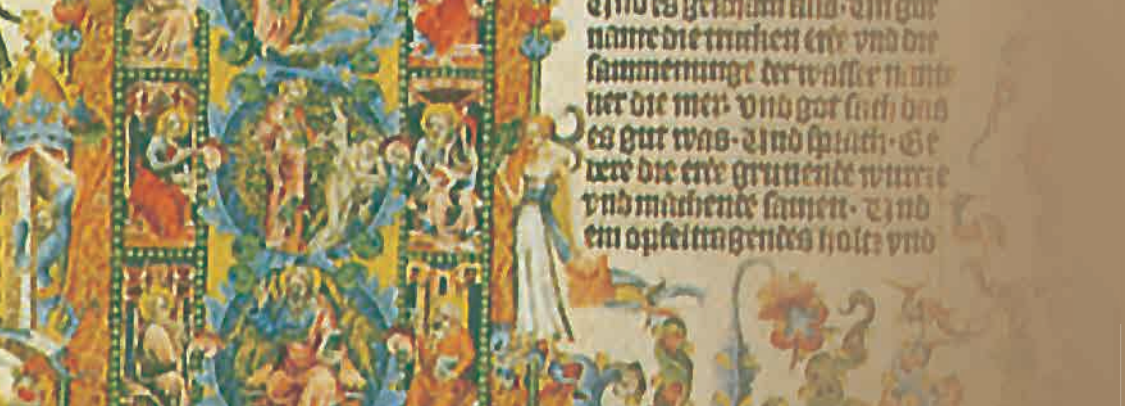 Und es geschach also. Un got
nante die truken erde vnd die
sammenunge der wasser nante
er die mer. Vnd got sach das
es gut was. Und sprach. Ge
bere die erde grunende wurtze
vnd machende samen. Und
ein opfeltragendes holtz vnd